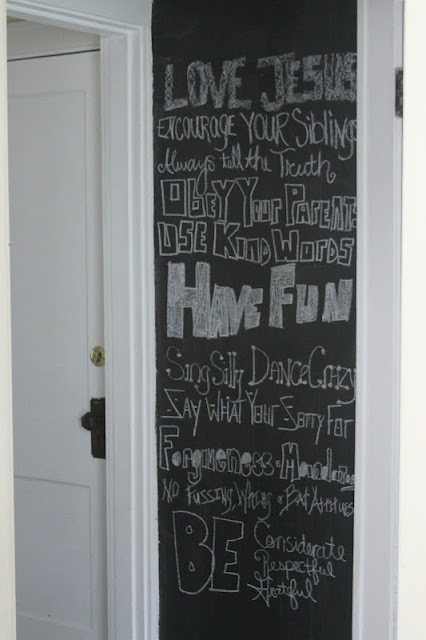 LOVE JESUS
ENCOURAGE YOUR Siblings
Always tell the Truth
Obey Your Parents
USE KIND WORDS
HAVE FUN
Sing Silly DANCE CRAZY
SAY WHAT YOUR SORRY FOR
Forgiveness = Mandatory
NO FUSSING, Whining or Bad Attitudes
BE Considerate
Respectful
Grateful